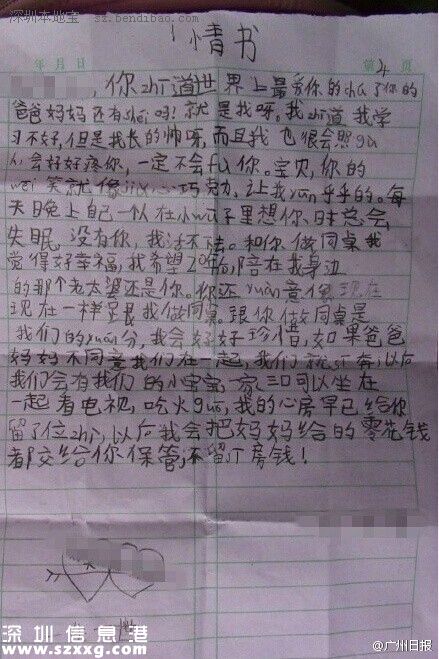 深圳本地宝 sz.bendibao.com
情书
年 月 日 第4页
，你zhī道世界上最爱你的chú了你的
爸爸妈妈还有shéi吗？就是我呀。我zhī道我学
习不好，但是我长的帅呀，而且我也很会照gù
人会好好疼你，一定不会fù你。宝贝，你的
wēi笑就像 巧克力，让我yūn乎乎的。每
天晚上自己一个人在小wū子里想你，时总会
失眠，没有你，我活不下去。和你做同桌我
觉得好幸福，我希望20年后，陪在我身边
的那个老太婆还是你。你还yuàn意像现在
现在一样呈我做同桌。跟你做同桌是
我们的yuán分，我会好好珍惜，如果爸爸
妈妈不同意我们在一起，我们就 奔，以后
我们会有我们的小宝宝，一家三口可以坐在
一起看电视，吃火guō，我的心房早已给你
留了位zhì，以后我会把妈妈给的零花钱
都交给你保管，不留丁房钱！
深圳信息港
www.szxxg.com
@广州日报